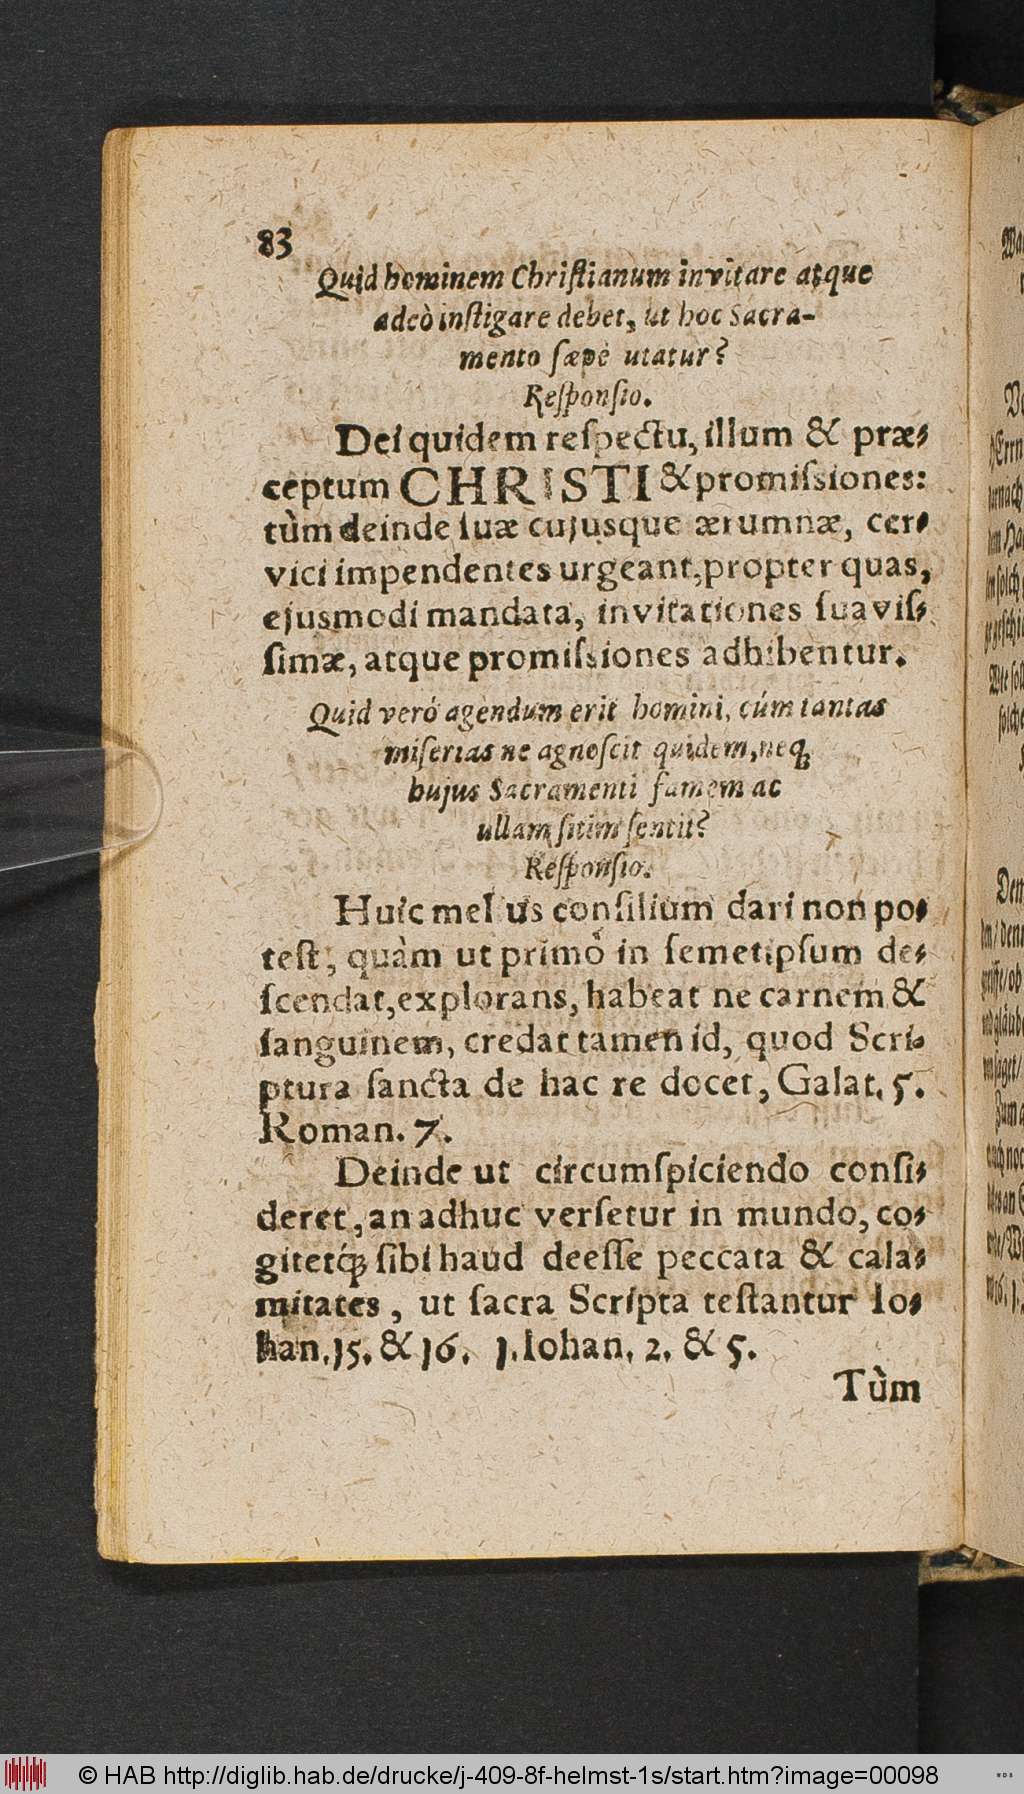 83
Quid hominem Christianum invitare atque
adeò instigare debet, ut hoc Sacra-
mento sæpè utatur?
Responsio.
Dei quidem respectu, illum & præ-
ceptum CHRISTI & promissiones:
tùm deinde suæ cujusque ærumnæ, cer-
vici impendentes urgeant, propter quas,
ejusmodi mandata, invitationes suavis-
simæ, atque promissiones adhibentur.
Quid veró agendum erit homini, cúm tantas
miserias ne agnoscit quidem, neq́;
hujus Sacramenti famem ac
ullam sitim sentit?
Responsio.
Huic melius consilium dari non po-
test, quàm ut primò in semetipsum de-
scendat, explorans, habeat ne carnem &
sanguinem, credat tamen id, quod Scri-
ptura sancta de hac re docet, Galat. 5.
Roman. 7.
Deinde ut circumspiciendo consi-
deret, an adhuc versetur in mundo, co-
gitetq́; sibi haud deesse peccata & cala-
mitates, ut sacra Scripta testantur Io-
han. 15. & 16. 1. Iohan. 2. & 5.
Tùm
© HAB http://diglib.hab.de/drucke/j-409-8f-helmst-1s/start.htm?image=00098